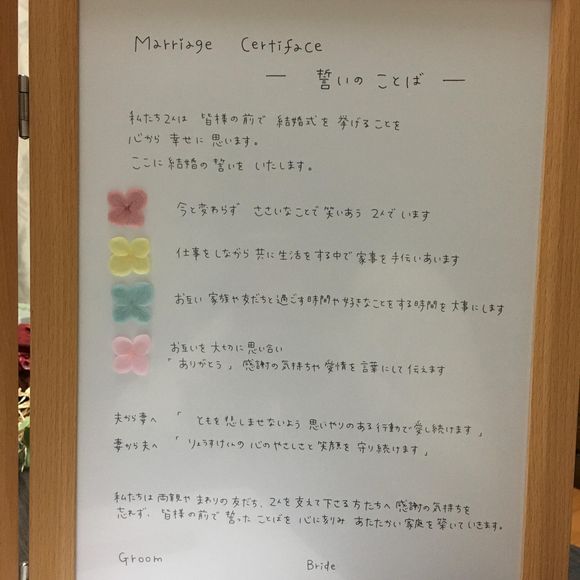 Marriage Certiface
― 誓いの ことば ―
私たち2人は 皆様の前で 結婚式を 挙げることを
心から 幸せに 思います。
ここに 結婚の 誓いを いたします。
今と変わらず ささいなことで 笑いあう 2人で います
仕事をしながら 共に 生活をする中で 家事を 手伝いあいます
お互い 家族や 友だちと 過ごす時間や 好きなことをする時間を 大事にします
お互いを 大切に 思い合い
「 ありがとう 」 感謝の気持ちや 愛情を 言葉にして 伝えます
夫から妻へ 「 ともを 悲しませないよう 思いやりのある 行動で 愛し続けます 」
妻から夫へ 「 りょうすけくんの 心のやさしさと 笑顔を 守り続けます 」
私たちは 両親や まわりの友だち、2人を 支えて下さる 方たちへ 感謝の気持ちを
忘れず、皆様の前で 誓った ことばを 心に刻み あたたかい 家庭を 築いていきます。
Groom
Bride